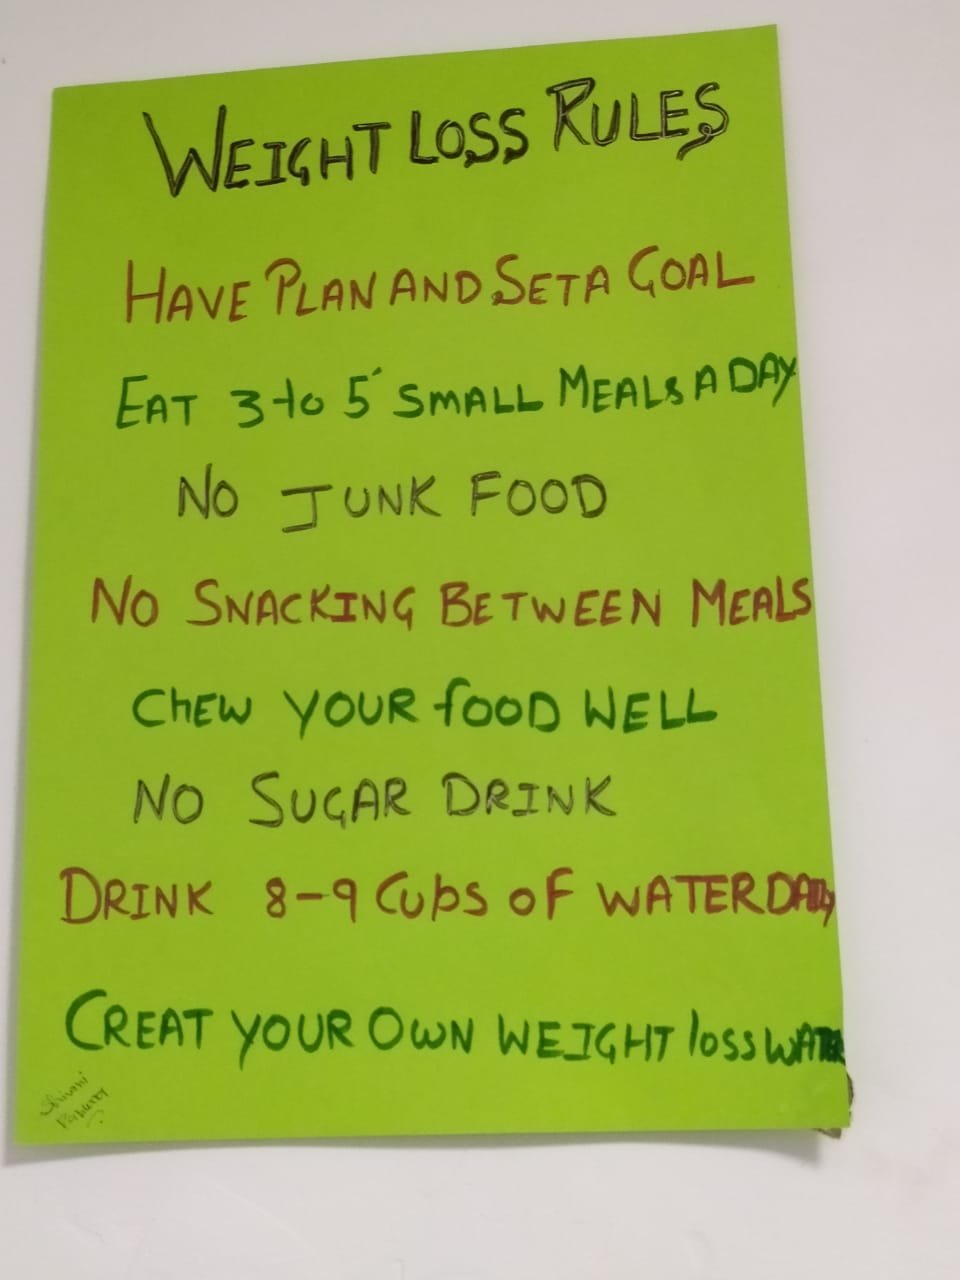 WEIGHT LOSS RULES
HAVE PLAN AND SET A GOAL
EAT 3 to 5 SMALL MEALS A DAY
NO JUNK FOOD
NO SNACKING BETWEEN MEALS
CHEW YOUR fOOD WELL
NO SUGAR DRINK
DRINK 8-9 Cups oF WATER DAILY
CREAT YOUR OWN WEIGHT loss WATER
Shivani